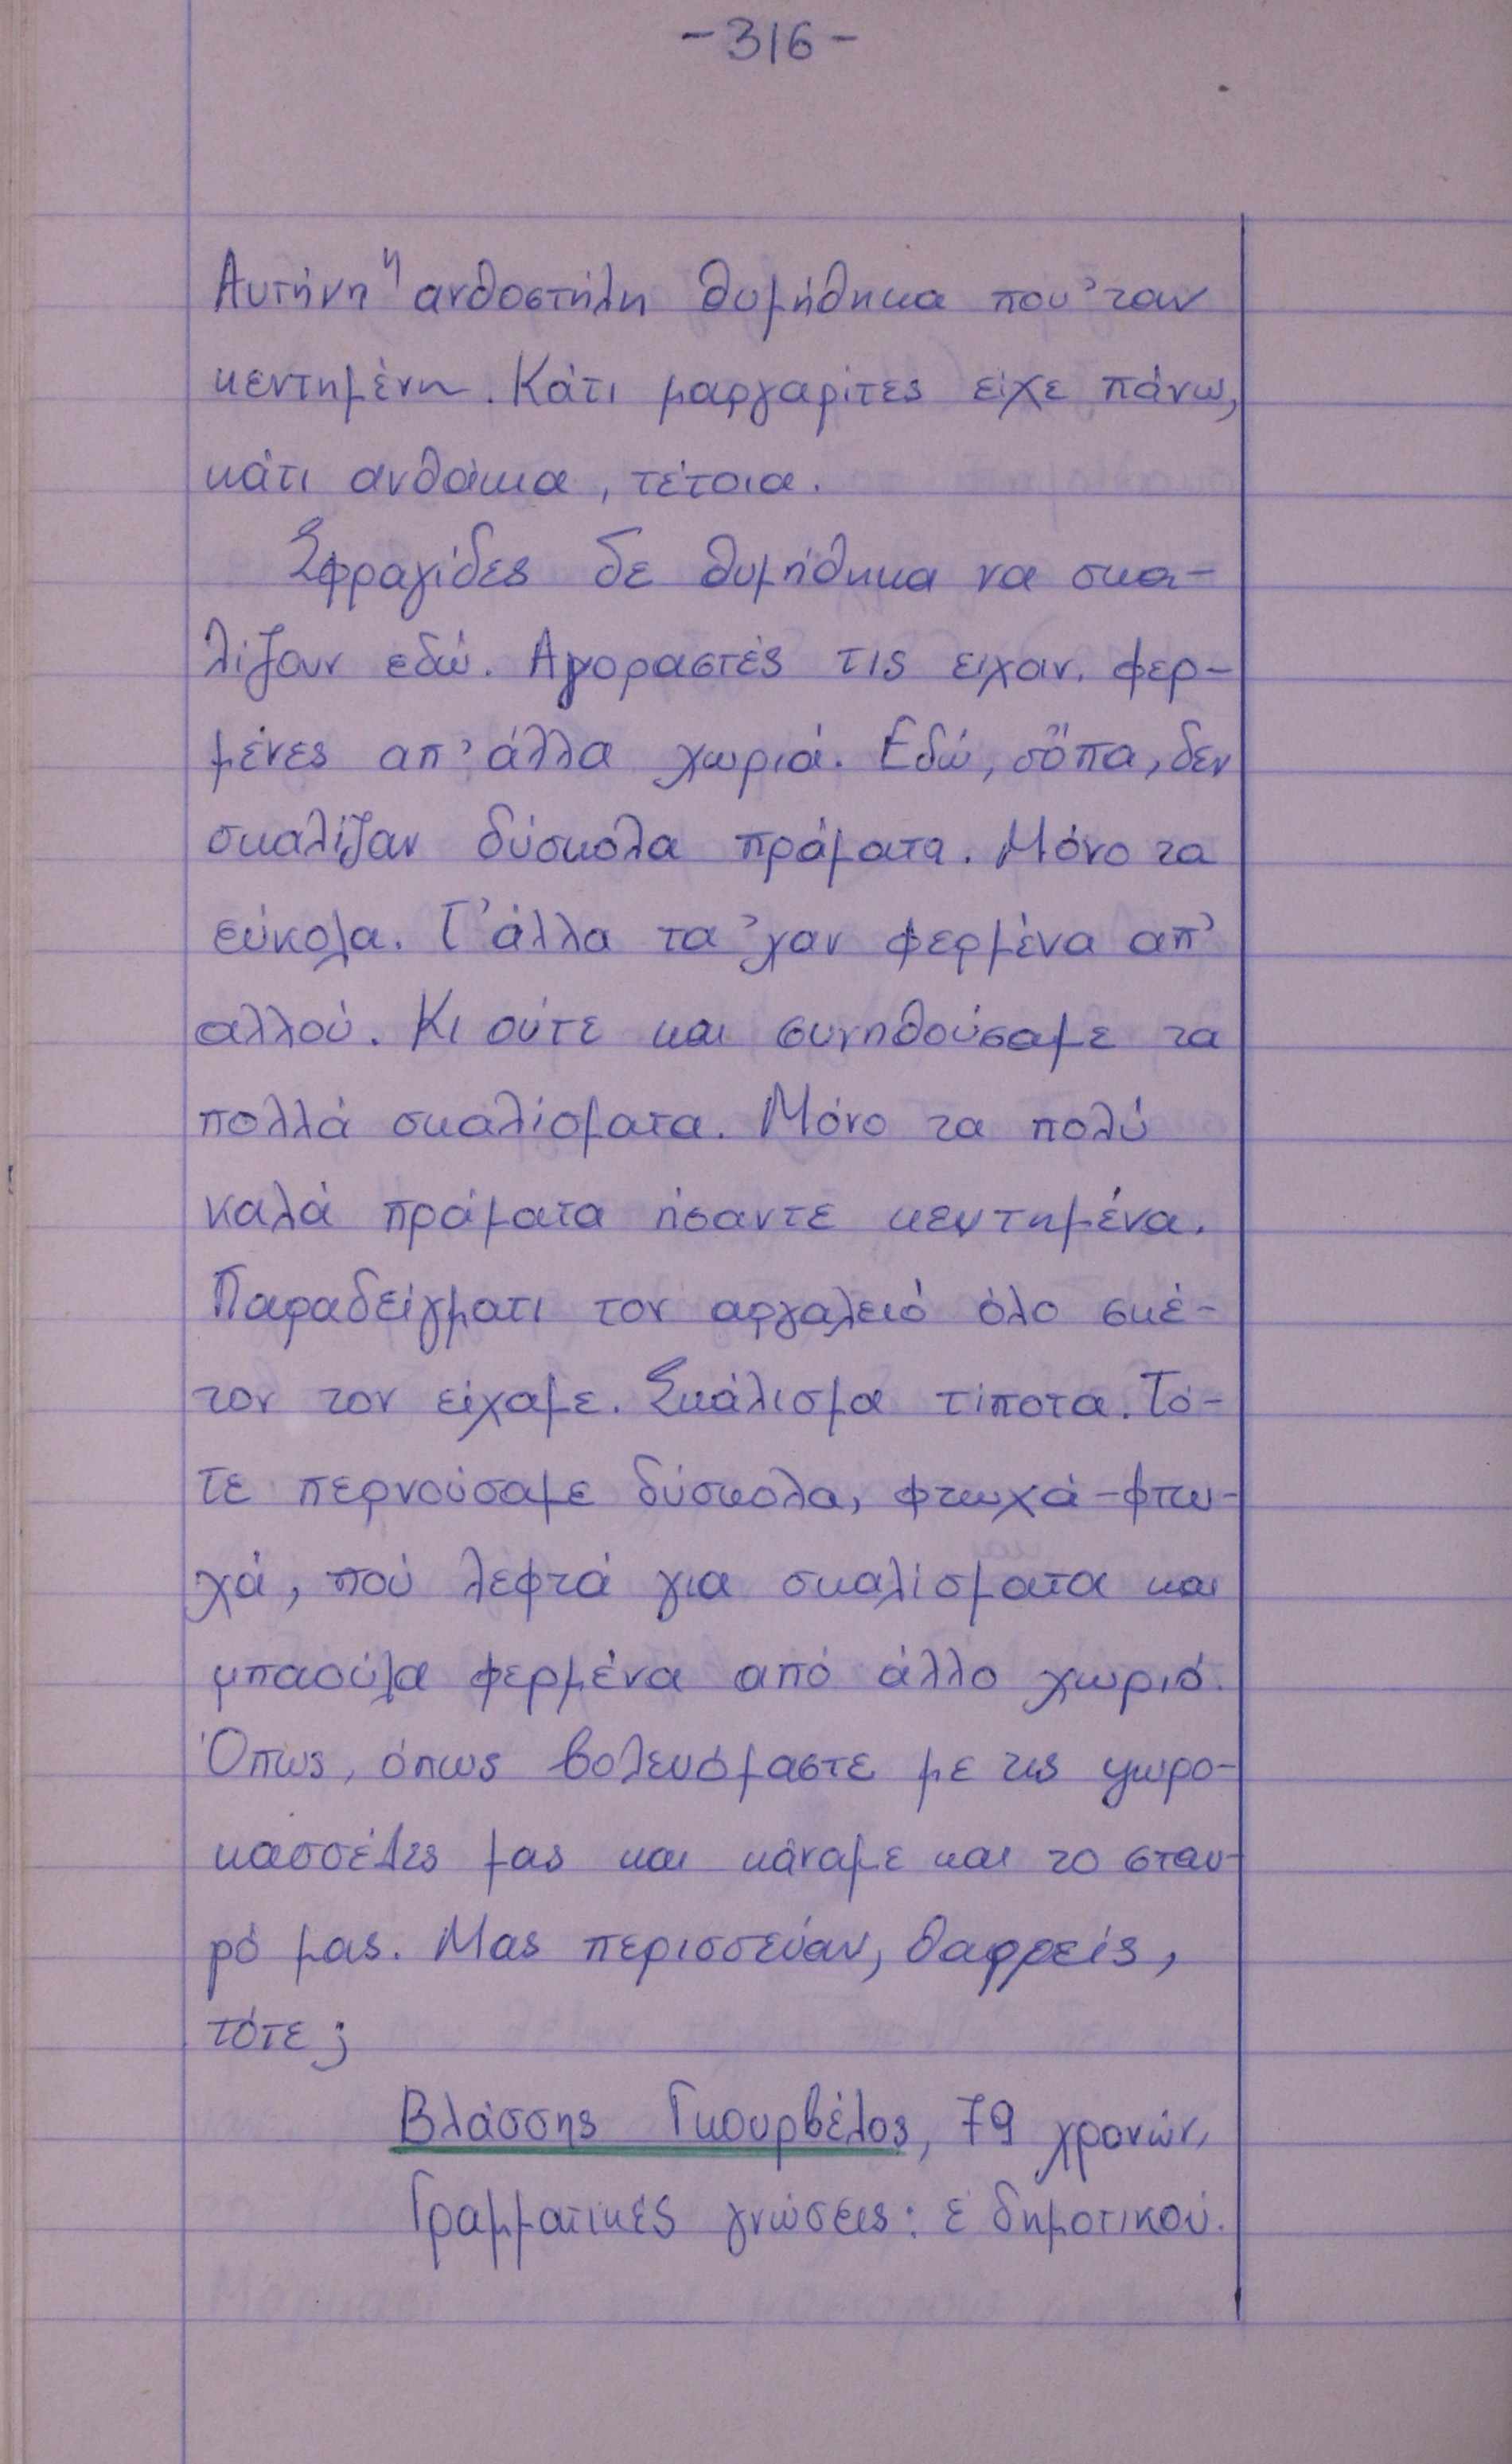 -316-
Αυτήνη η ανθοστήλη θυμήθηκα που 'ταν
κεντημένη. Κάτι μαργαρίτες είχε πάνω,
κάτι ανθάκια, τέτοια.
Σφραγίδες δε θυμήθηκα να σκα-
λίζουν εδώ. Αγοραστές τις ειχαν. φερ-
μένες απ' άλλα χωριά. Εδώ, σὄπα, δεν
σκαλίζαν δύσκολα πράματα. Μόνο τα
εύκολα. Τ' άλλα τα 'χαν φερμένα απ'
αλλού. Κι ούτε και συνηθούσαμε τα
πολλά σκαλίσματα. Μόνο τα πολύ
καλά πράματα ήσαντε κεντημένα.
Παραδείγματι τον αργαλειό όλο σκέ-
τον τον είχαμε. Σκάλισμα τίποτα. Τό-
τε περνούσαμε δύσκολα, φτωχά-φτω-
χά, πού λεφτά για σκαλίσματα και
μπαούλα φερμένα από άλλο χωριό.
Όπως, όπως βολευόμαστε με τις ψωρο-
κασσέλες μας και κάναμε και το σταυ-
ρό μας. Μας περισσεύαν, θαρρείς,
τότε;
Βλάσσης Γκουρβέλος, 79 χρονών,
Γραμματικές γνώσεις: ε' δημοτικού.